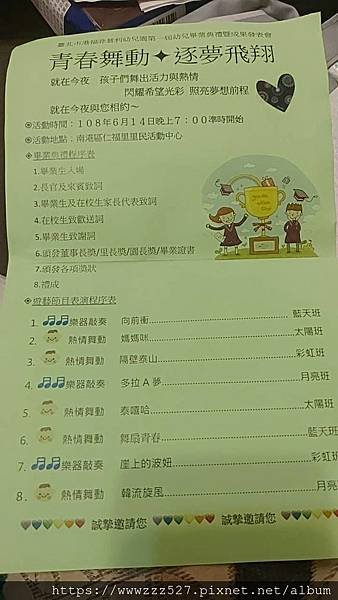 臺北市港福非營利幼兒園第一屆幼兒畢業典禮暨成果發表會
青春舞動✦逐夢飛翔
就在今夜 孩子們舞出活力與熱情
閃耀希望光彩 照亮夢想前程
就在今夜與您相約～
※活動時間：108年6月14日晚上7：00準時開始
※活動地點：南港區仁福里里民活動中心
※畢業典禮程序表
1.畢業生入場
2.長官及來賓致詞
3.畢業生及在校生家長代表致詞
4.在校生致歡送詞
5.畢業生致謝詞
6.頒發董事長獎/里長獎/園長獎/畢業證書
7.頒發各項獎狀
8.禮成
※遊藝節目表演程序表
1. 樂器敲奏 向前衝 藍天班
2. 熱情舞動 媽媽咪 太陽班
3. 熱情舞動 隔壁泰山 彩虹班
4. 樂器敲奏 多拉A夢 月亮班
5. 熱情舞動 泰嘻哈 太陽班
6. 熱情舞動 舞扇青春 藍天班
7. 樂器敲奏 崖上的波妞 彩虹班
8. 熱情舞動 韓流旋風 月亮
誠摯邀請您 誠摯邀請您
https://wwwzzz527.pixnet.net/album